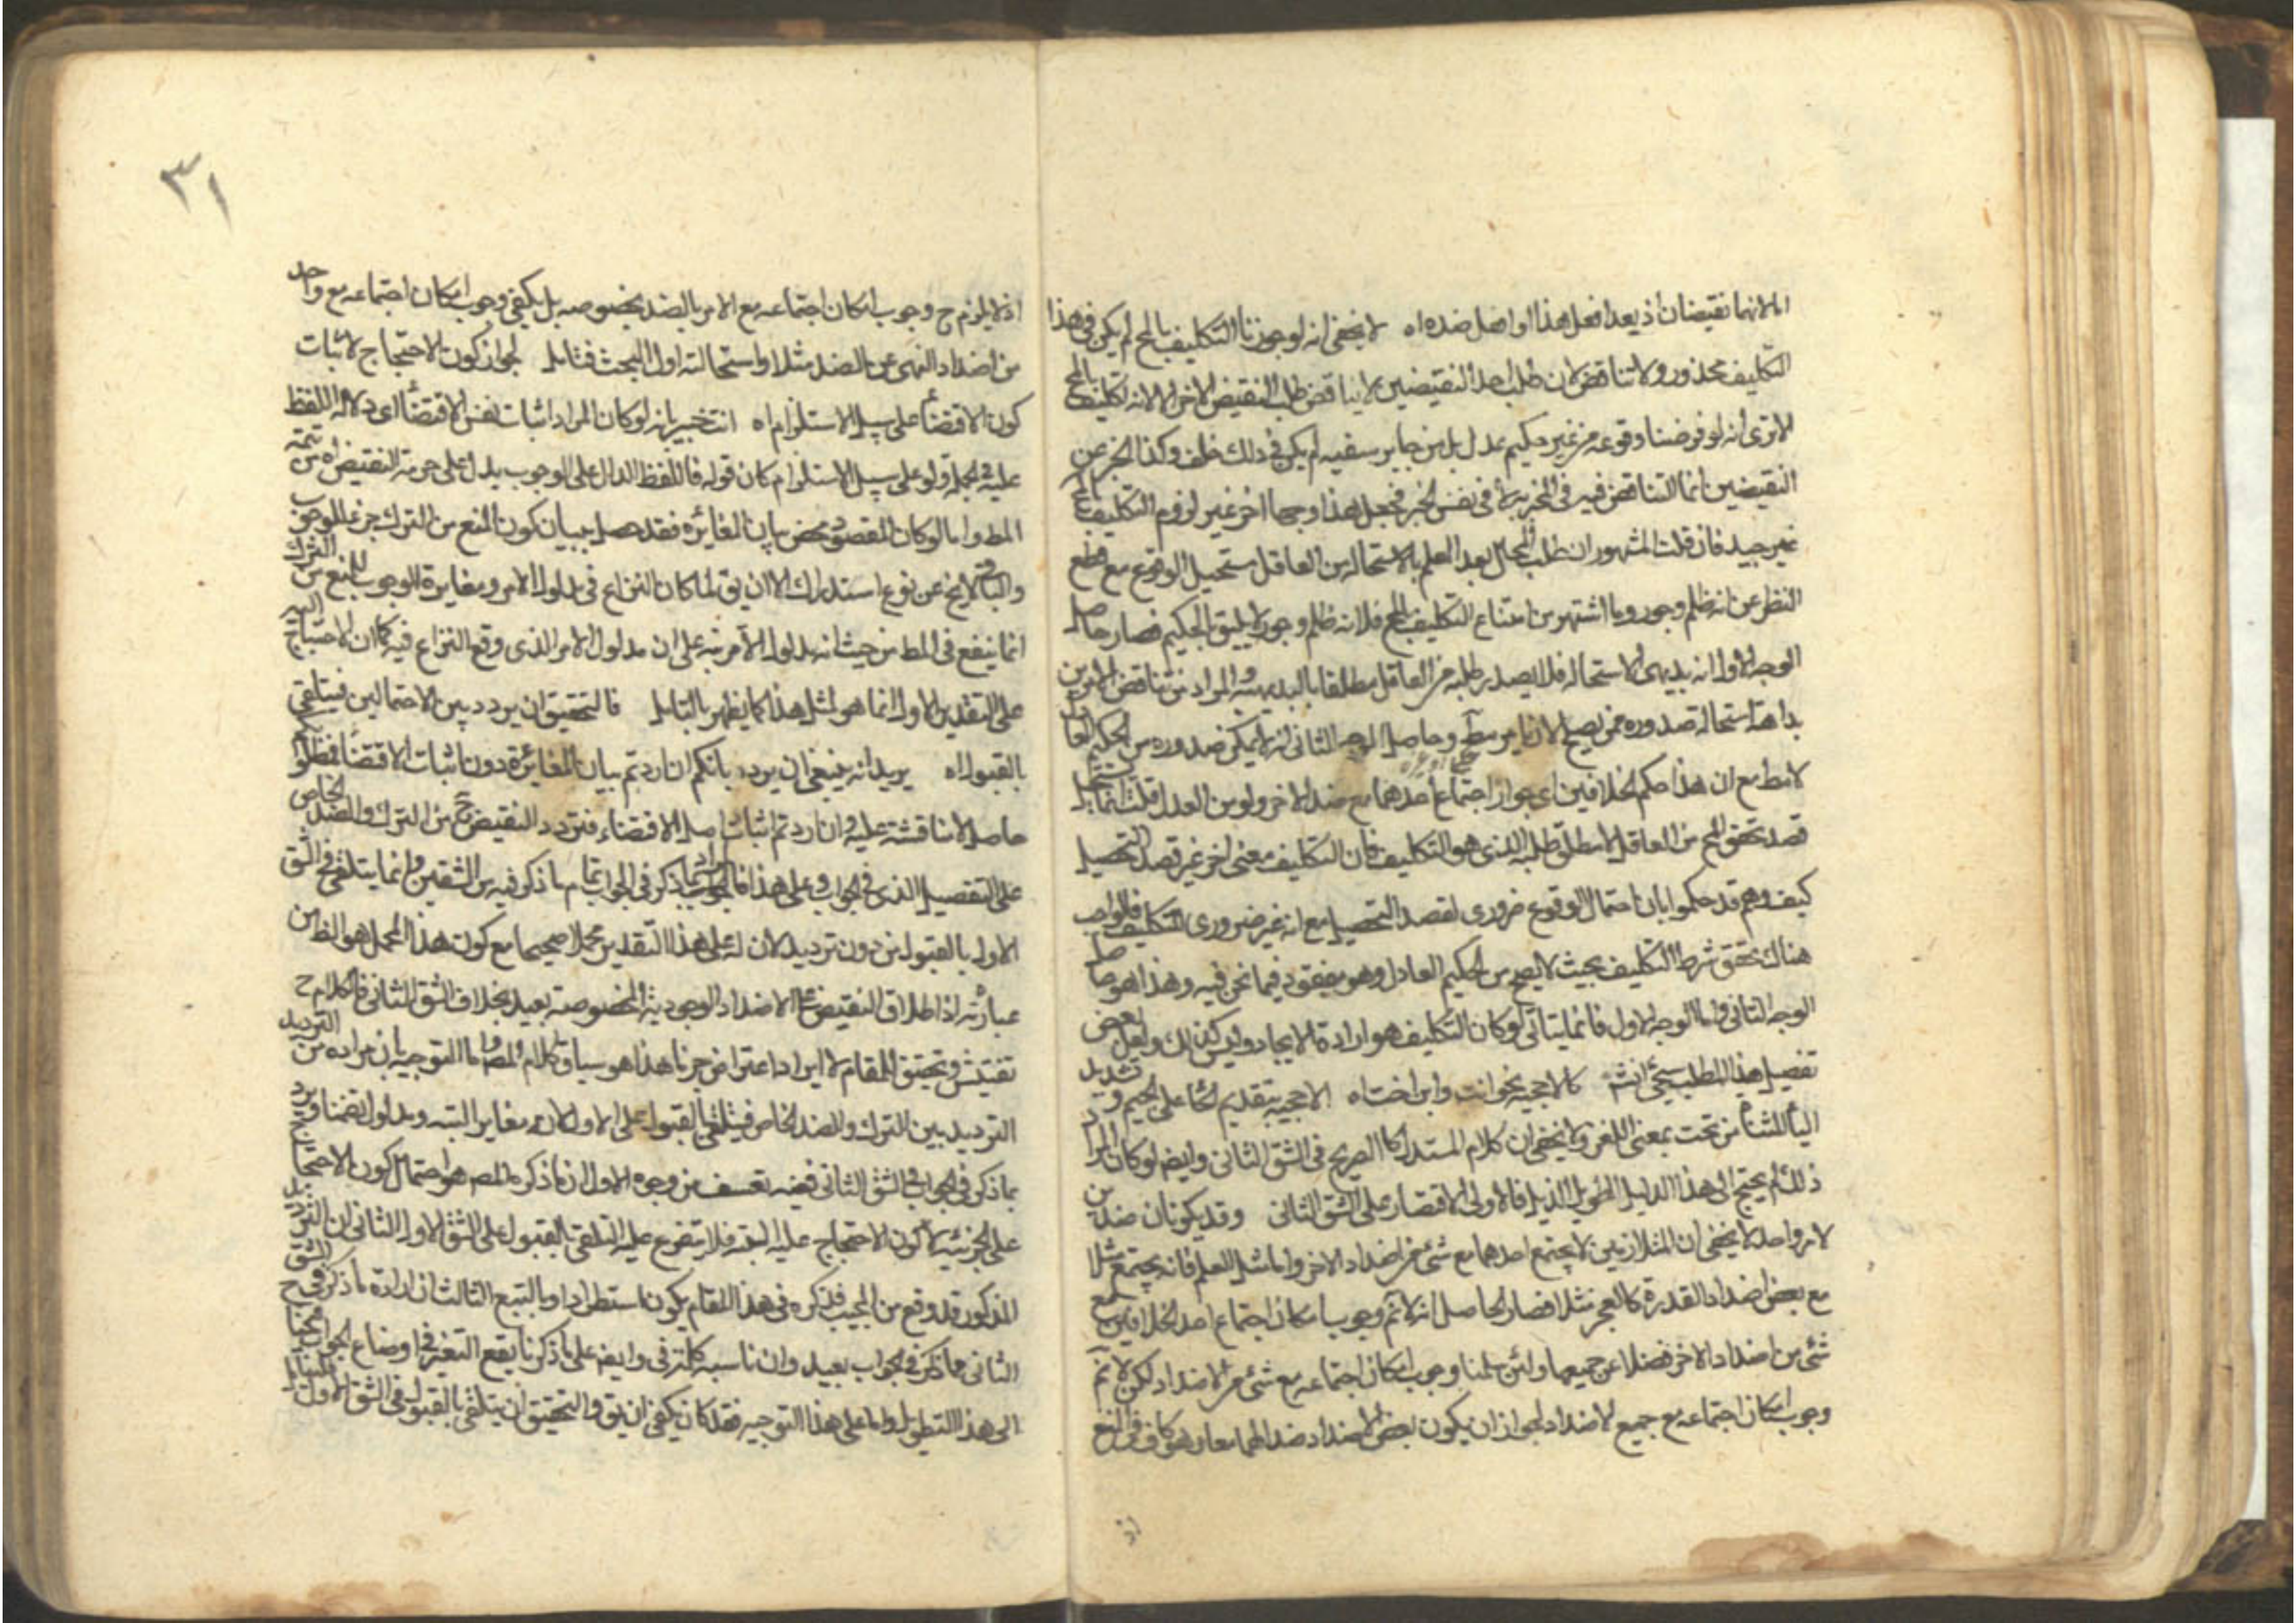 اما لانهما نقيضان اذ يعد افعل هذا او افعل ضده اه لا يخفى انه لو جوزنا التكليف بالمح لم يكن في هذا
التكليف محذور ولا تناقض لان طلب احد النقيضين لا يناقض طلب النقيض الاخر الا لانه تكليف بالمح
الا ترى انه لو فرضنا وقوعه من غير حكيم عدل بل من جاير سفيه لم يكن في ذلك خلف وكذا الخبر عن
النقيضين انما التناقض فيه في المخبر به لا في نفس الخبر فجعل هذا وجها اخر غير لزوم التكليف بالمح
غير جيد فان قلت المشهور ان طلب المحال بعد العلم بالاستحالة من العاقل مستحيل الوقوع مع قطع
النظر عن انه ظلم وجور وما اشتهر من امتناع التكليف بالمح فلانه ظلم وجور لا يليق بالحكيم فصار حاصل
الوجه الاول انه بديهي الاستحالة فلا يصدر طلبه من العاقل مطلقا بالبديهة والمراد من تناقض الامرين
بداهة استحالة صدوره ممن يصلح لان يامر مط وحاصل الوجه الثاني انه لا يمكن صدوره من الحكيم العادل
لا مط مع ان هذا حكم الخلافين اي جواز اجتماع احدهما مع ضد الاخر ولو من العدل قلت انما يستحيل
قصد تحقق المح من العاقل لا مطلق طلبه الذي هو التكليف فان التكليف معنى اخر غير قصد التحصيل
كيف وهم قد حكموا بان احتمال الوقوع ضروري لقصد التحصيل مع انه غير ضروري للتكليف فالواجب
هناك تحقق شرط التكليف بحيث لا يقبح من الحكيم العادل وهو مفقود فيما نحن فيه وهذا هو حاصل
الوجه الثاني واما الوجه الاول فانما يتاتى لو كان التكليف هو ارادة الايجاد وليس كذلك ولعل بعض
تفصيل هذا المطلب سيجئ انش كالاحجية نحو انت وابن اختاه الاحجية بتقديم الحا على الجيم وتشديد
اليا المثناة من تحت بمعنى اللغز ولا يخفى ان كلام المستدل كالصريح في الشق الثاني وايض لو كان المراد
ذلك لم يحتج الى هذا الدليل الطويل الذيل فالاولى الاقتصار على الشق الثاني وقد يكونان ضدين
لامر واحد لا يخفى ان المتلازمين لا يجتمع احدهما مع شئ من اضداد الاخر واما مثل العلم فانه يجتمع مثلا
مع بعض اضداد القدرة كالعجز مثلا فصار الحاصل انه لا نم وجوب امكان اجتماع احد الخلافين مع
شئ من اضداد الاخر فضلا عن جميعها ولئن سلمنا وجوب امكان اجتماعه مع شئ من الاضداد لكن لا نم
وجوب امكان اجتماعه مع جميع الاضداد لجواز ان يكون بعض الاضداد ضدا لهما معا وهو كاف في المنع
اذ
٣١
اذ لا يلزم ح وجوب امكان اجتماعه مع الامر بالضد بخصوصه بل يكفي وجوب امكان اجتماعه مع واحد
من اضداد النهي عن الضد مثلا واستحالته اول البحث فتامل لجواز كون الاحتجاج لاثبات
كون الاقتضاء على سبيل الاستلزام اه انت خبير بانه لو كان المراد اثبات نفس الاقتضاء اي دلالة اللفظ
عليه في الجملة ولو على سبيل الاستلزام كان قوله فاللفظ الدال على الوجوب يدل على حرمة النقيض اه من تتمة
المط واما لو كان المقصود محض بيان المغائرة فقد حصل ببيان كون المنع من الترك جزء للوجوب
والباقي لا يخ عن نوع استدراك الا ان يق لما كان النزاع في مدلول الامر ومغايرة الوجوب للمنع من الترك
انما ينفع في المط من حيث انه مدلول الامر نبه على ان مدلول الامر الذي وقع النزاع فيه كما ان الاحتياج اليه
على التقدير الاول انما هو لمثل هذا كما يظهر بالتامل فالتحقيق ان يردد بين الاحتمالين فيتلقى
بالقبول اه يريد انه ينبغي ان يردد بانكم ان اردتم بيان المغائرة دون اثبات الاقتضاء فنظركم
حاصل لا مناقشة عليه وان اردتم اثبات اصل الاقتضاء فنردد النقيض ح بين الترك والضد الخاص
على التفصيل الذي في الجواب وعلى هذا فالمراد بما ذكر في الجواب تمام ما ذكر فيه من الشقين وانما يتلقى في الشق
الاول بالقبول من دون ترديد لان له على هذا التقدير محملا صحيحا مع كون هذا المحمل هو الظ من
عبارته اذ اطلاق النقيض على الاضداد الوجودية المخصوصة بعيد بخلاف الشق الثاني فالكلام ح
تفتيش وتحقيق للمقام لا ايراد اعتراض جزما هذا هو سياق كلام المص واما التوجيه بان مراده من الترديد
الترديد بين الترك والضد الخاص فيتلقى بالقبول على الاول لانه مغاير البتة ومدلول تضمنا ويرد
بما ذكر في الجواب في الشق الثاني ففيه تعسف من وجوه الاول ان ما ذكره المص هو احتمال كون الاحتجاج
على الجزئية لا كون الاحتجاج عليه البتة فلا يتفرع عليه التلقي بالقبول على الشق الاول الثاني ان الترديد
المذكور قد وقع من المجيب فذكره في هذا المقام يكون استطرادا وبالتبع الثالث ان ارادة ما ذكر في الشق
الثاني مما ذكر في الجواب بعيد وان ناسبه كلمة في وايض على ما ذكرنا يقع التغير في اوضاع الجواب ح
الى هذا التطويل واما على هذا التوجيه فقد كان يكفي ان يق والتحقيق ان يتلقى بالقبول في الشق الاول